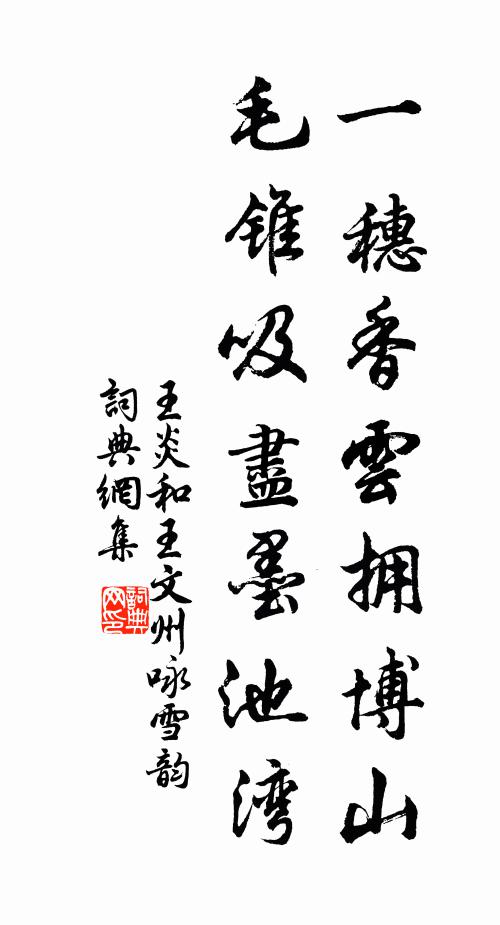 一穗香雲拥博山
毛錐吸盡墨池湾
王炎和王文州咏雪韵
詞典網集
詞典網印